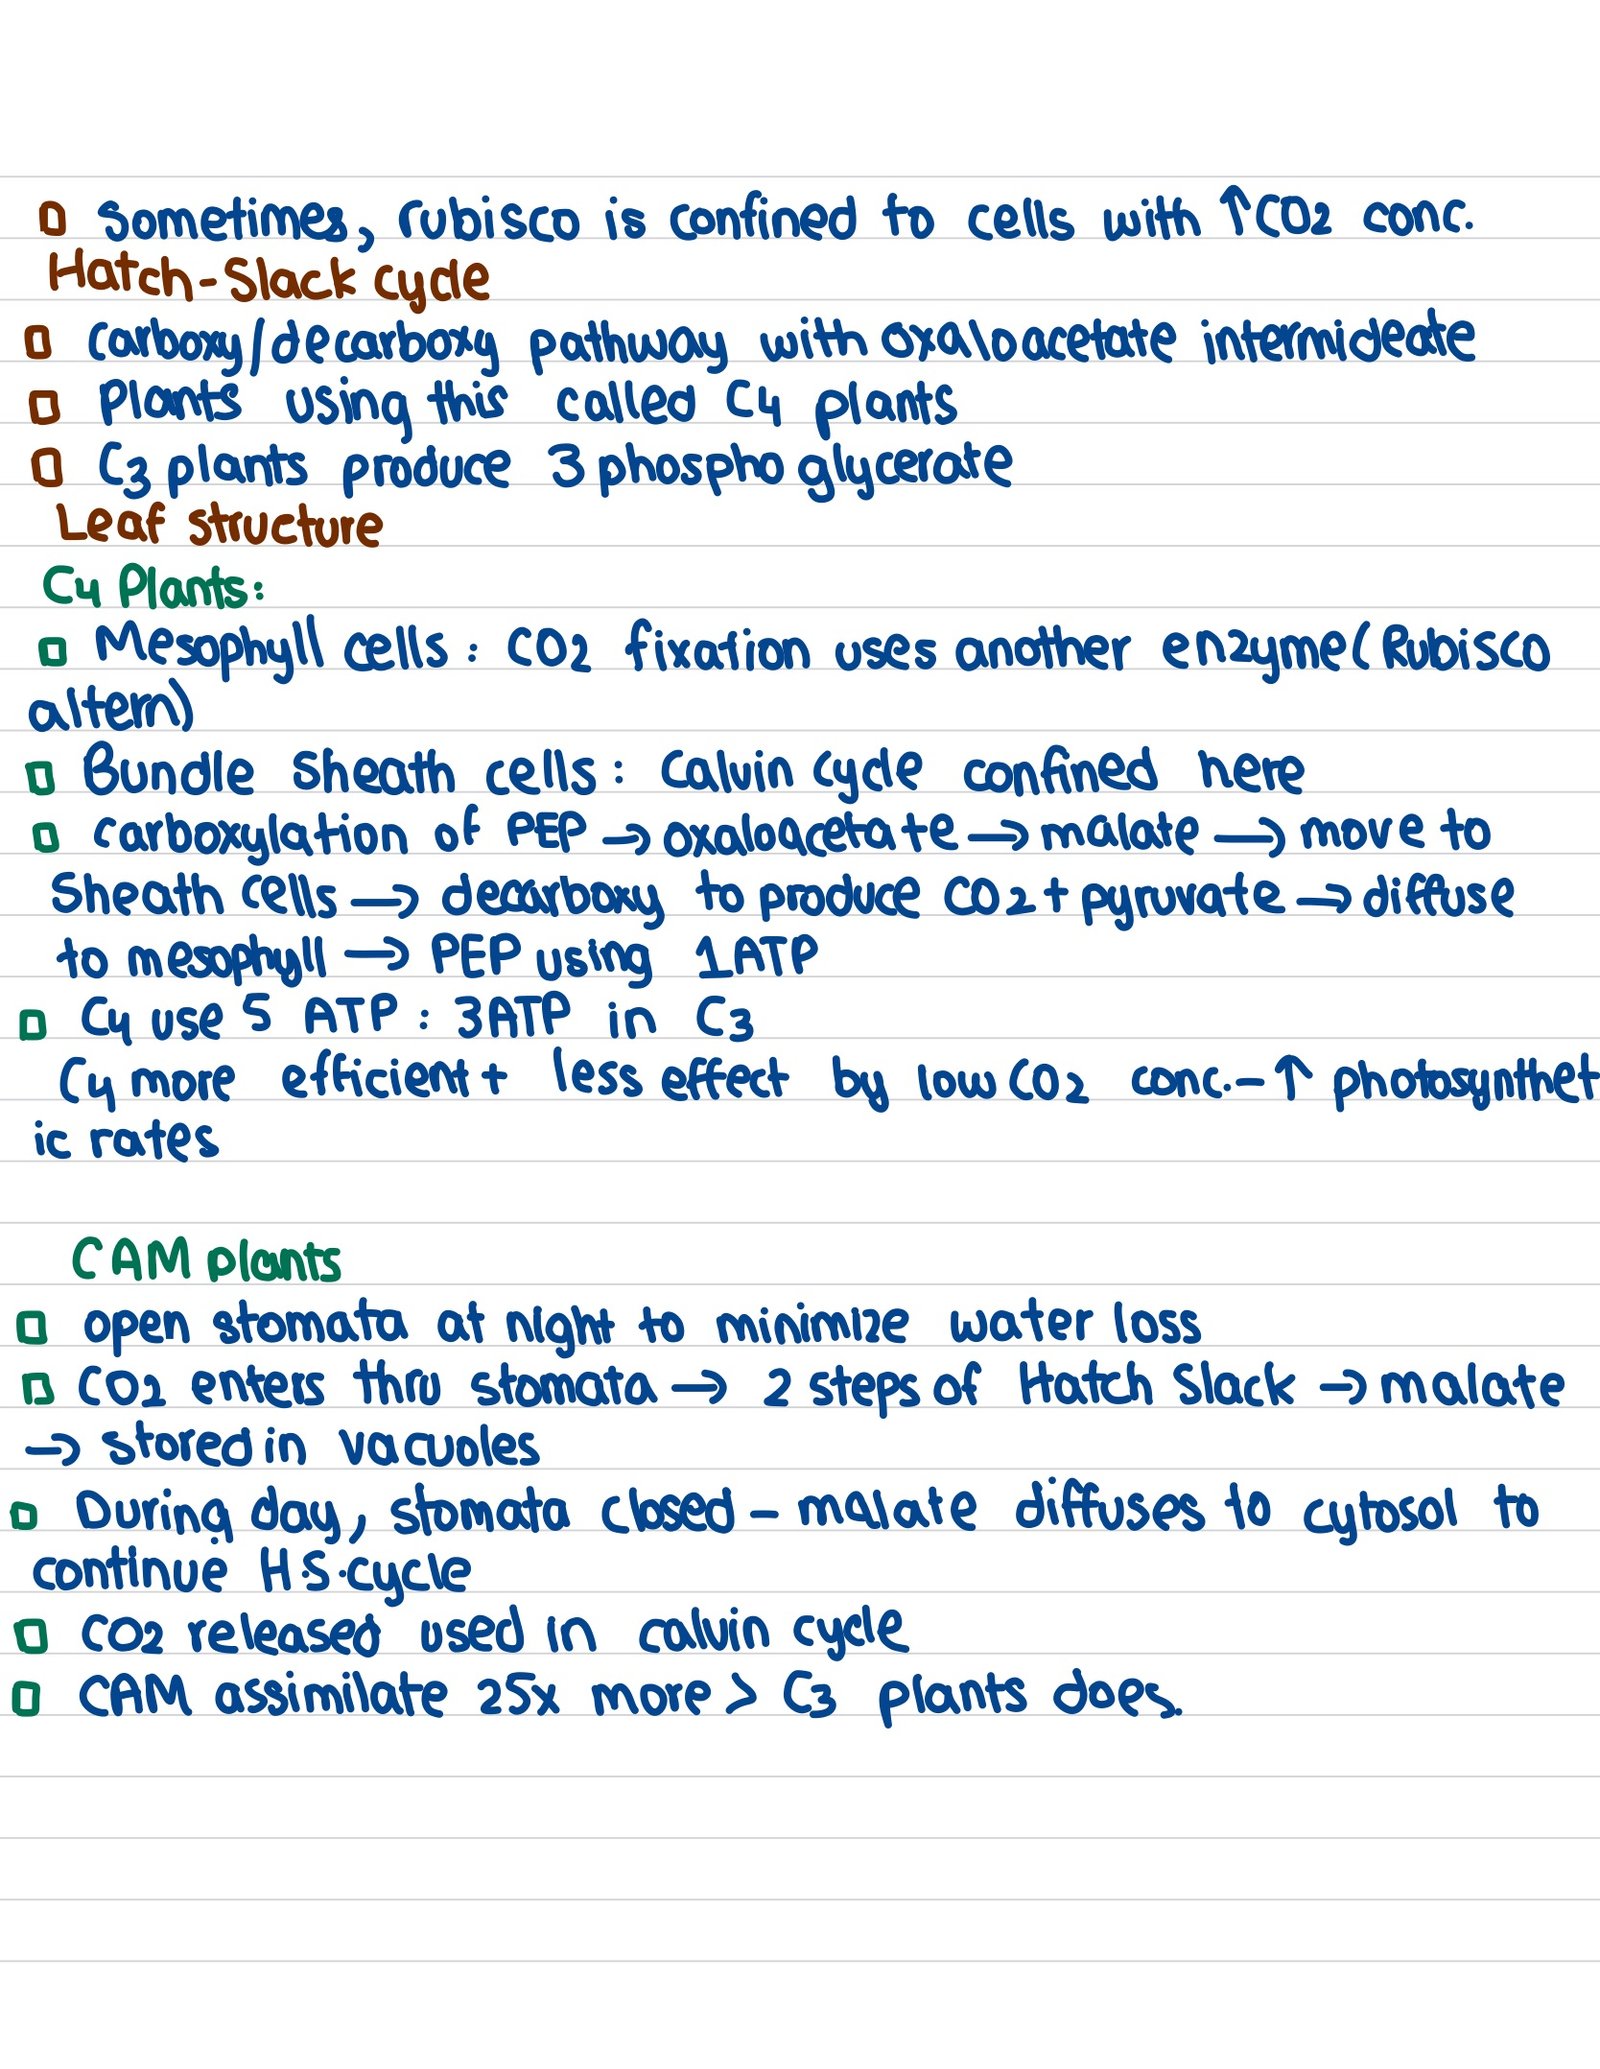 Sometimes, rubisco is confined to cells with ↑CO2 conc.
Hatch-Slack cycle
carboxy/decarboxy pathway with oxaloacetate intermideate
Plants using this called C4 plants
C3 plants produce 3 phospho glycerate
Leaf structure
C4 Plants:
Mesophyll cells: CO2 fixation uses another enzyme (Rubisco
altern)
Bundle sheath cells: Calvin cycle confined here
carboxylation of PEP → oxaloacetate → malate → move to
sheath cells → decarboxy to produce CO2 + pyruvate → diffuse
to mesophyll → PEP using 1ATP
C4 use 5 ATP : 3ATP in C3
C4 more efficient + less effect by low CO2 conc. - ↑ photosynthet
ic rates
CAM plants
open stomata at night to minimize water loss
CO2 enters thru stomata → 2 steps of Hatch Slack → malate
→ stored in vacuoles
During day, stomata closed - malate diffuses to cytosol to
continue H.S. cycle
CO2 released used in calvin cycle
CAM assimilate 25x more > C3 plants does.